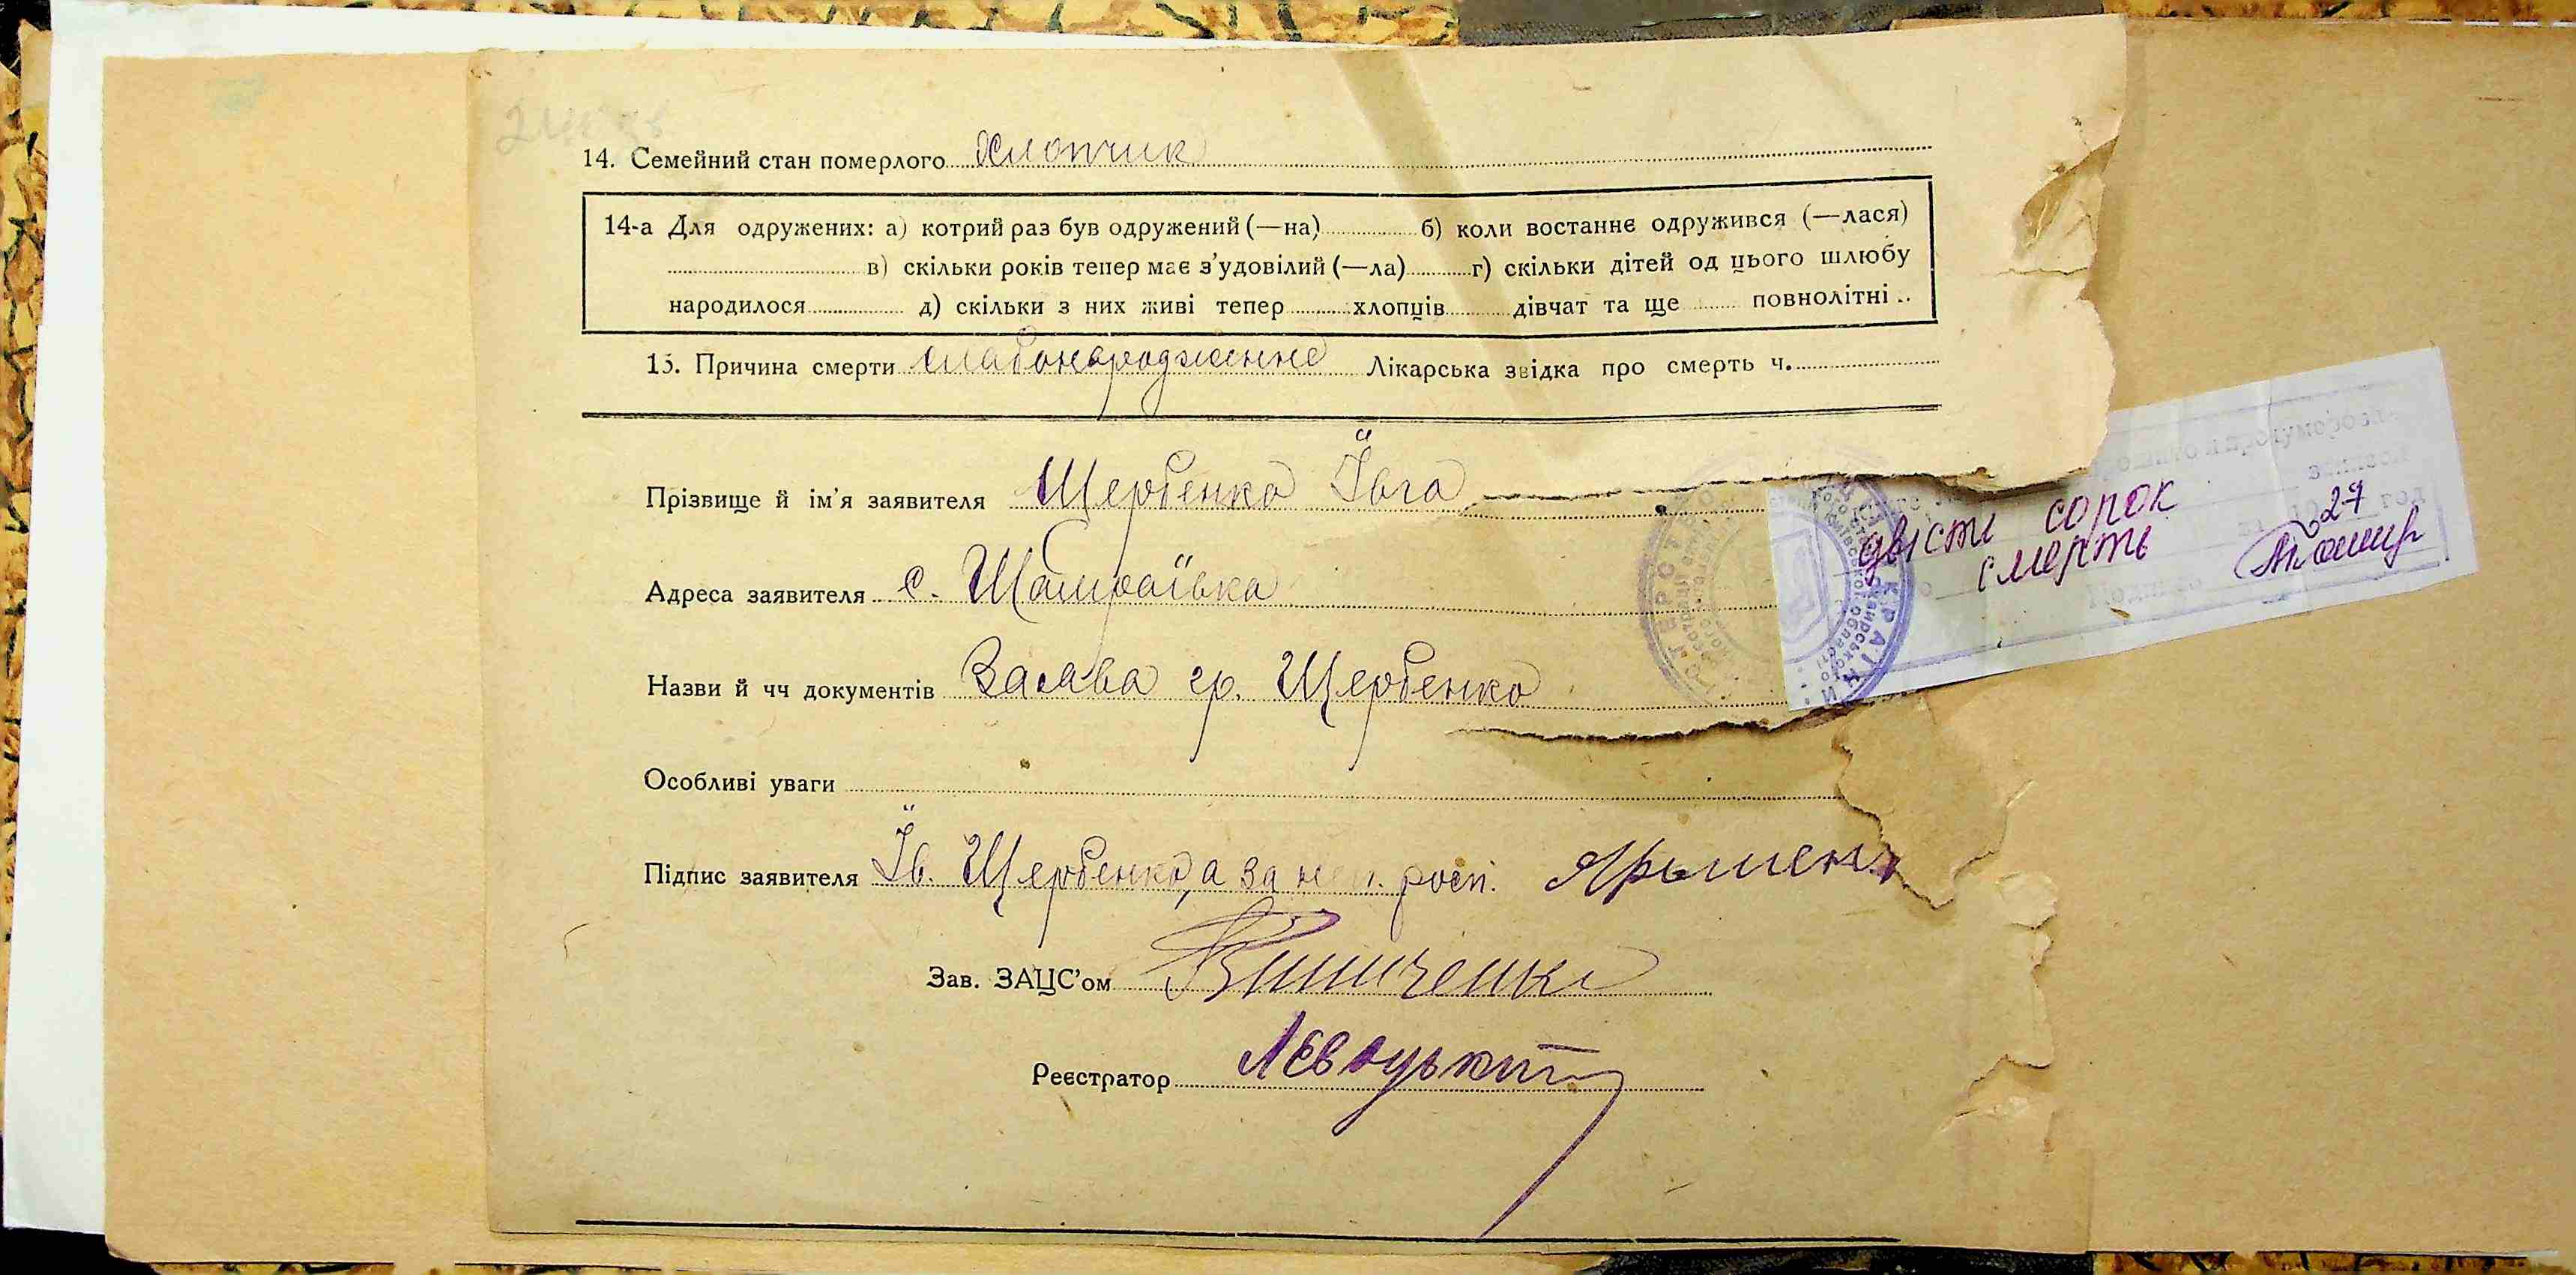 14. Семейний стан померлого Хлопчик
14-а Для одружених: а) котрий раз був одружений (—на) б) коли востаннє одружився (—лася)
в) скільки років тепер має з’удовілий (—ла) г) скільки дітей од цього шлюбу
народилося д) скільки з них живі тепер хлопців дівчат та ще повнолітні
15. Причина смерти слабонародження Лікарська звідка про смерть ч.
Прізвище й ім’я заявителя Щербенко Ївга
Адреса заявителя с. Шамраївка
Назви й чч документів Заява гр. Щербенко
Особливі уваги
Підпис заявителя Їв. Щербенко, а за неп. росп.
Зав. ЗАЦС’ом Винниченко
Реєстратор Левицький
двісти сорок
смерть
27